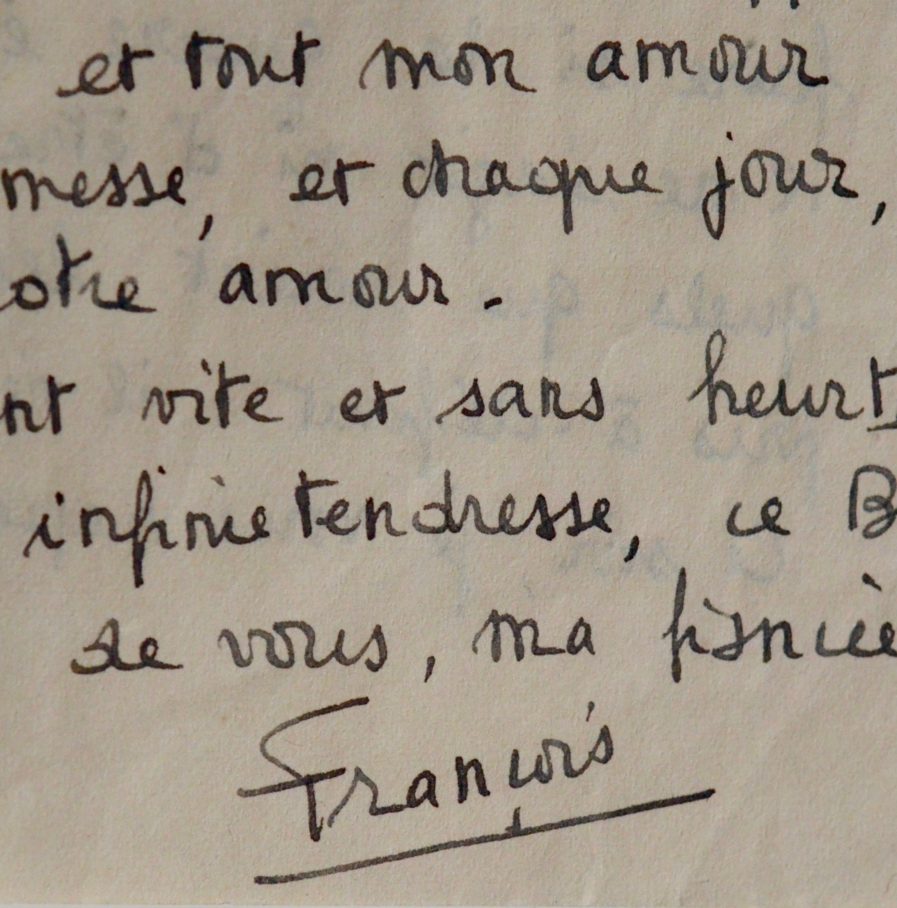 et tout mon amour
messe, et chaque jour,
otre amour.
nt vite et sans heurt
infinie tendresse, ce B
de vous, ma fiancée
François